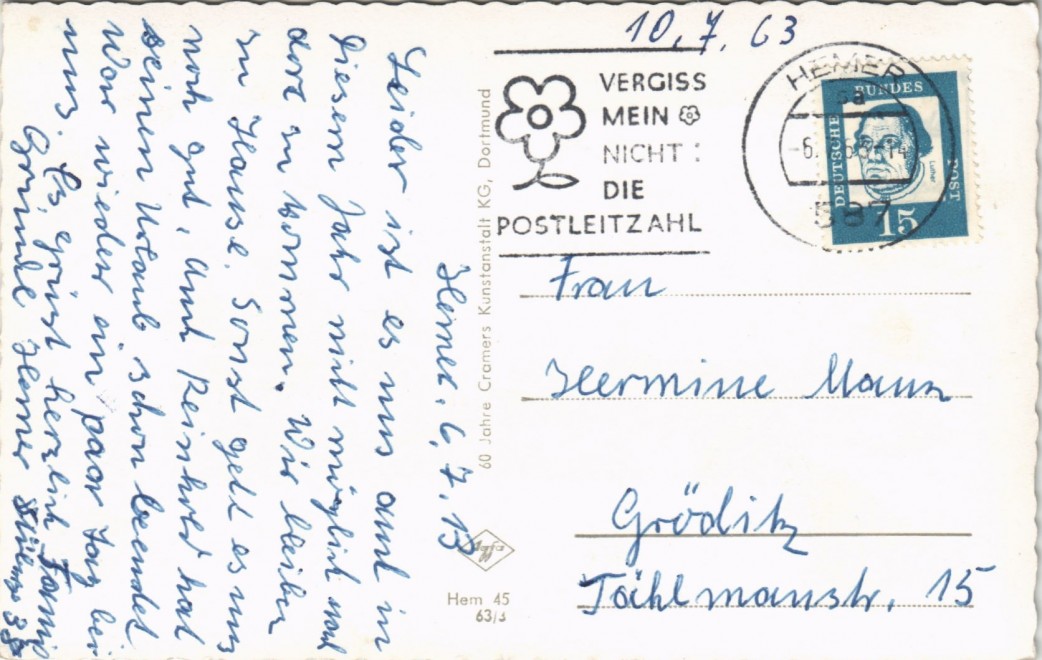 10.7.63
VERGISS
MEIN
NICHT:
DIE
POSTLEITZAHL
HEMER
sa
-6. -14
587
DEUTSCHE BUNDES POST
Luther
15
Hemer. 6.7.63
Leider ist es uns auch in
diesem Jahr nicht möglich nach
dort zu kommen. Wir bleiben
zu Hause. Sonst geht es uns
noch gut, Auch Reinhold hat
seinen Urlaub schon beendet
War wieder ein paar Tag bei
uns. Es grüßt herzlich Famil
Hemer
60 Jahre Cramers Kunstanstalt KG, Dortmund
Frau
Hermine
Gröditz
Tählmanstr. 15
Hem 45
63/3